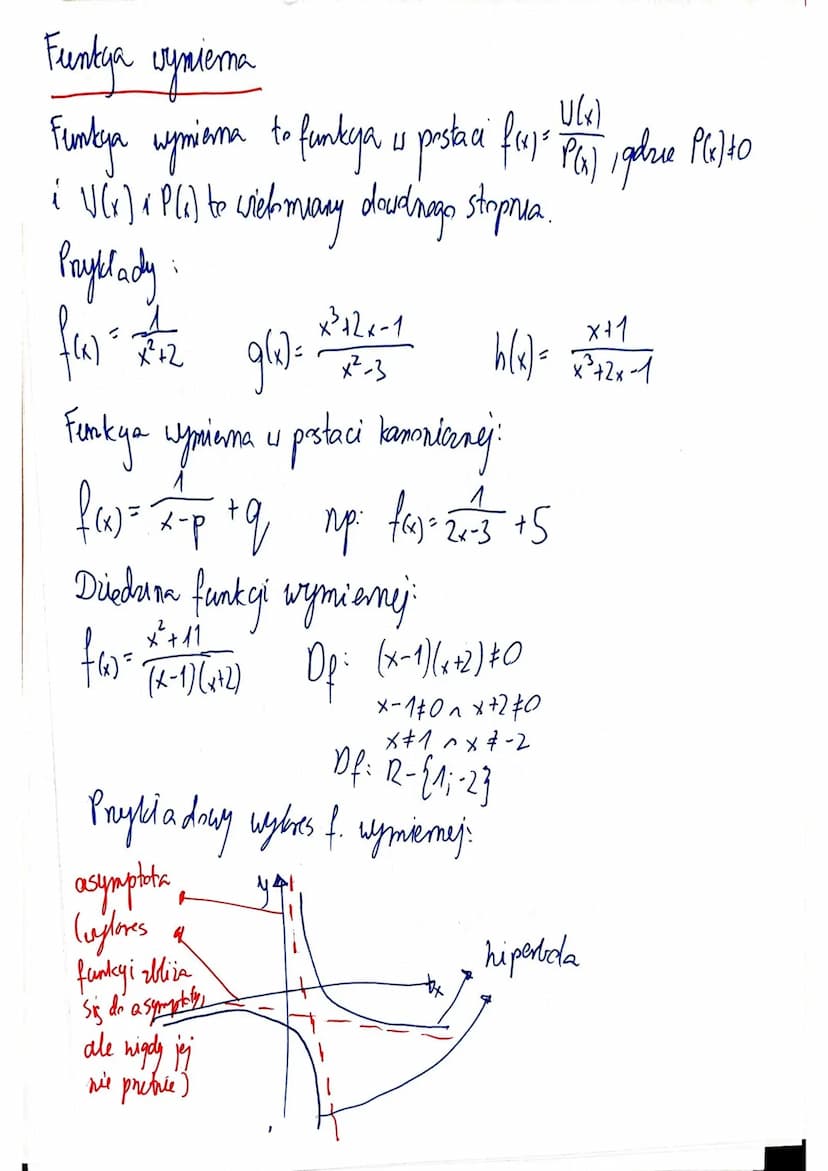 Funkcja wymierna
Funkcja wymierna to funkcja w postaci f(x) = U(x)/P(x), gdzie P(x)≠0
i U(x) i P(x) to wielomiany dowolnego stopnia.
Przykłady:
f(x) = 1/(x²+2) g(x) = (x³+2x-1)/(x²-3) h(x) = (x+1)/(x³+2x-1)
Funkcja wymierna w postaci kanonicznej:
f(x) = 1/(x-p) + q np: f(x) = 1/(2x-3) + 5
Dziedzina funkcji wymiernej:
f(x) = (x²+11)/((x-1)(x+2)) Df: (x-1)(x+2)≠0
x-1≠0 ∧ x+2≠0
x≠1 ∧ x≠-2
Df: R-{1;-2}
Przykładowy wykres f. wymiernej:
asymptota
(wykres
funkcji zbliża
się do asymptoty,
ale nigdy jej
nie przetnie)
y
x
hiperbola